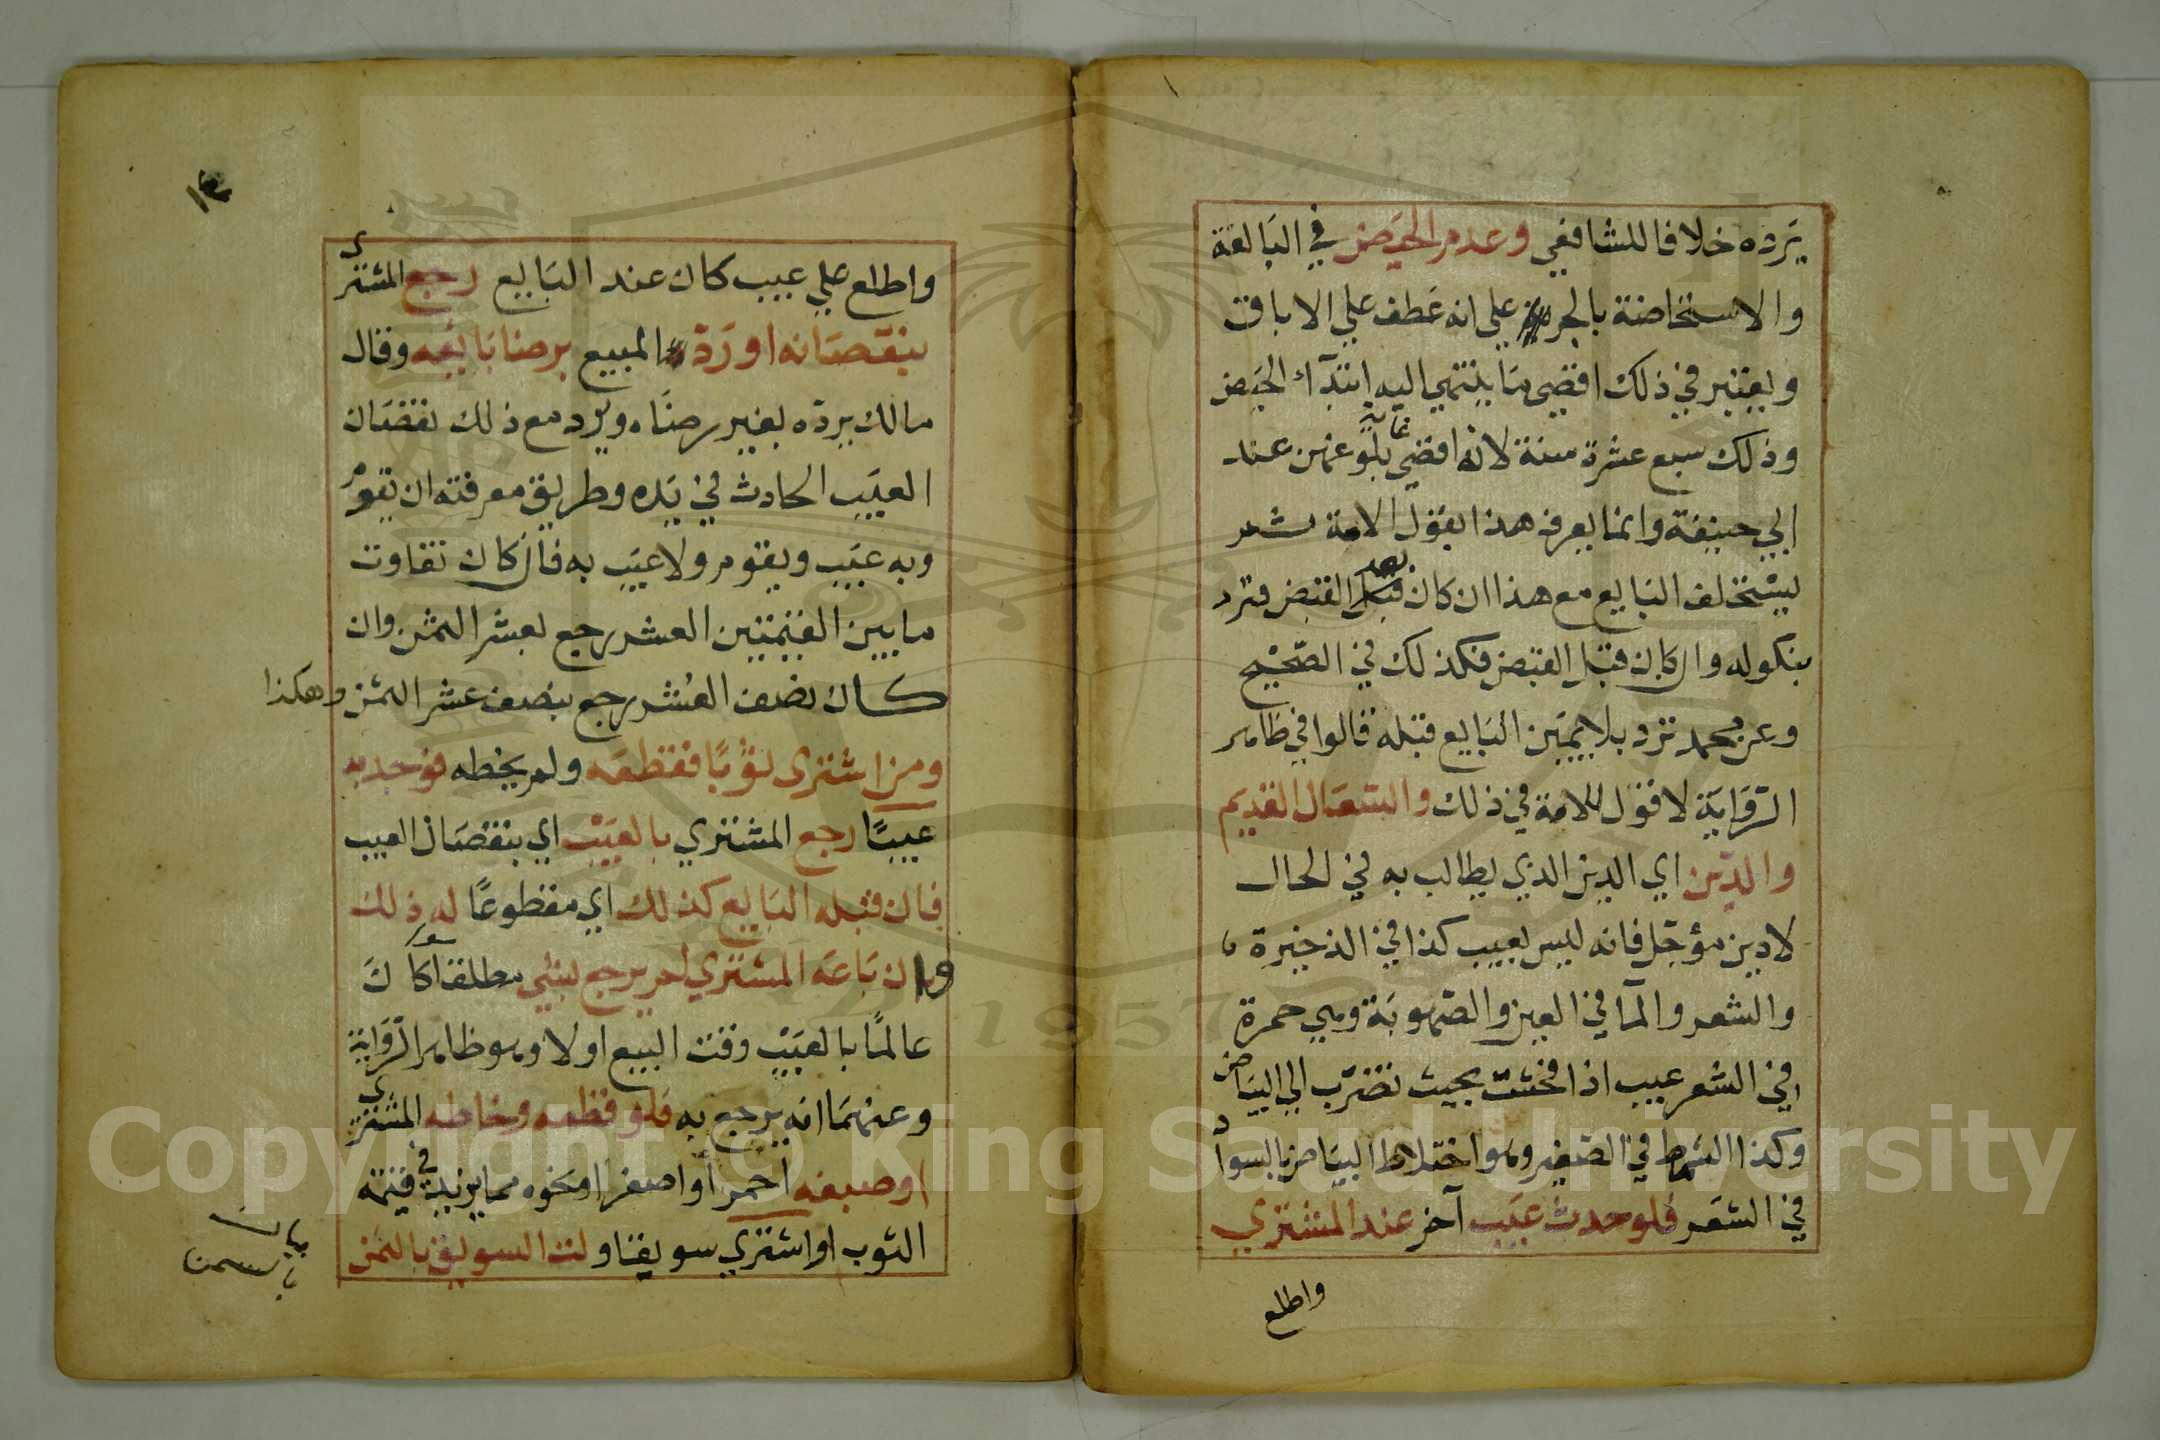 يرده خلافا للشافعي وعدم الحيض في البالغة
والاستحاضة بالجر علي انه عطف علي الاباق
ويعتبر في ذلك اقصي ما ينتهي اليه ابتداء الحيض
وذلك سبع عشرة سنة لانه اقصي غاية بلوغهن عند
ابي حنيفة وانما يعرف هذا بقول الامة ثم
ليستحلف البايع مع هذا ان كان بعد القبض فترد
بنكوله وان كان قبل القبض فكذلك في الصحيح
وعن محمد ترد بلا يمين البايع قبله قالوا في ظاهر
الرواية لا قول للامة في ذلك والسعال القديم
والدين اي الدين الذي يطالب به في الحال
لا دين مؤجل فانه ليس بعيب كذا في الذخيرة
والشعر والمآ في العين والصهوبة وهي حمرة
في الشعر عيب اذا فحشت بحيث تضرب الي البياض
وكذا الشمط في الصغير وهو اختلاط البياض بالسواد
في الشعر فلو حدث عيب آخر عند المشتري
واطلع
١٤
واطلع علي عيب كان عند البايع رجع المشتري
بنقصانه او رد المبيع برضا بايعه وقال
مالك يرده بغير رضاه ويرد مع ذلك نقصان
العيب الحادث في يده وطريق معرفته ان يقوم
وبه عيب ويقوم ولا عيب به فان كان تفاوت
ما بين القيمتين العشر رجع بعشر الثمن وان
كان نصف العشر رجع بنصف عشر الثمن وهكذا
ومن اشترى ثوبا فقطعه ولم يخطه فوجد به
عيبا رجع المشتري بالعيب اي بنقصان العيب
فان قبله البايع كذلك اي مقطوعا له ذلك
وان باعه المشتري لم يرجع بشي مطلقا سوا كان
عالما بالعيب وقت البيع اولا وهو ظاهر الرواية
وعنهما انه يرجع به فلو قطعه وخاطه المشتري
او صبغه احمر او اصفر او نحوه مما يزيد في قيمة
الثوب او اشتري سويقا ولت السويق بالسمن
بالسمن